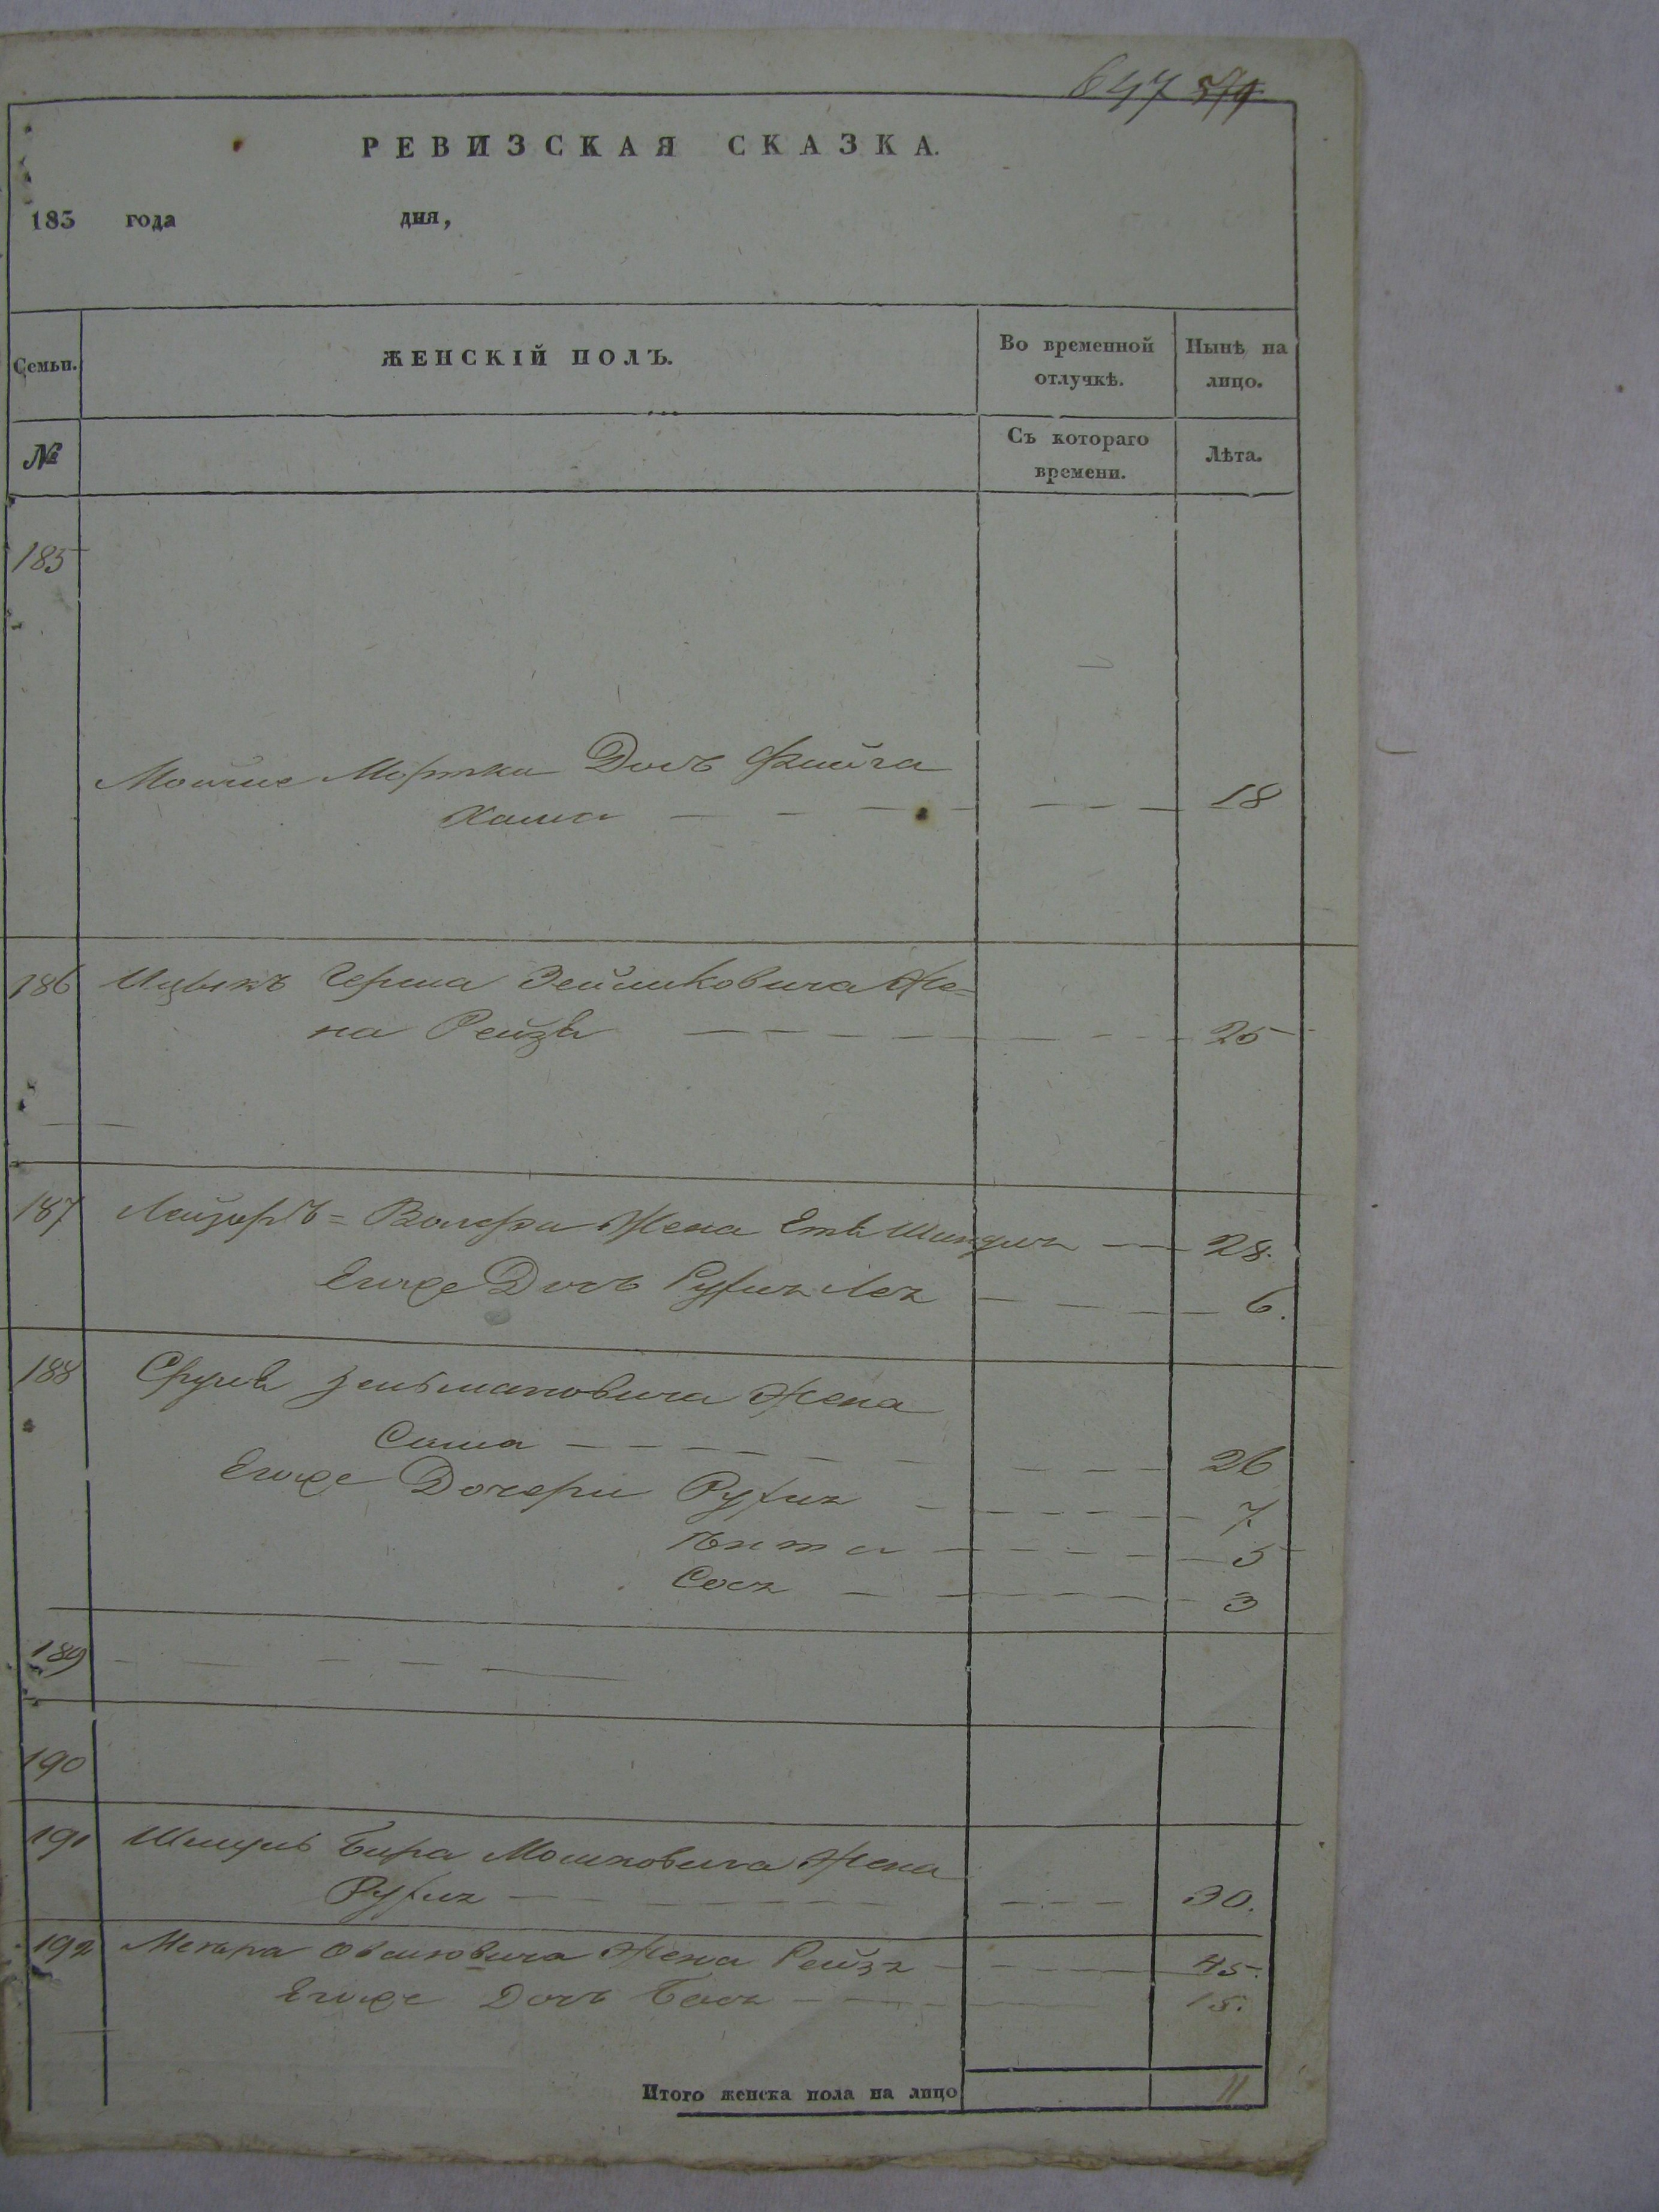 647
РЕВИЗСКАЯ СКАЗКА.
183 года дня,
Семьи. ЖЕНСКІЙ ПОЛЪ. Во временной отлучкѣ. Нынѣ на лицо.
№ Съ котораго времени. Лѣта.
185
Мортки Дочь Фейга
Хаша 18
186 Ицыкъ Герша Зейликовича Же=
на Рейзѣ 25
187 Лейзоръ= Жена
28.
Егоже Дочь Рухля Лея 6.
188 Сруля Зельмановича Жена
26
Егоже Дочери Рухля 7
5
Сося 3
189
190
191 Бера Мошковича Жена
Рухля 30.
192 Жена Рейзя 45.
Егоже Дочь Бася 15.
Итого женска пола на лицо 11